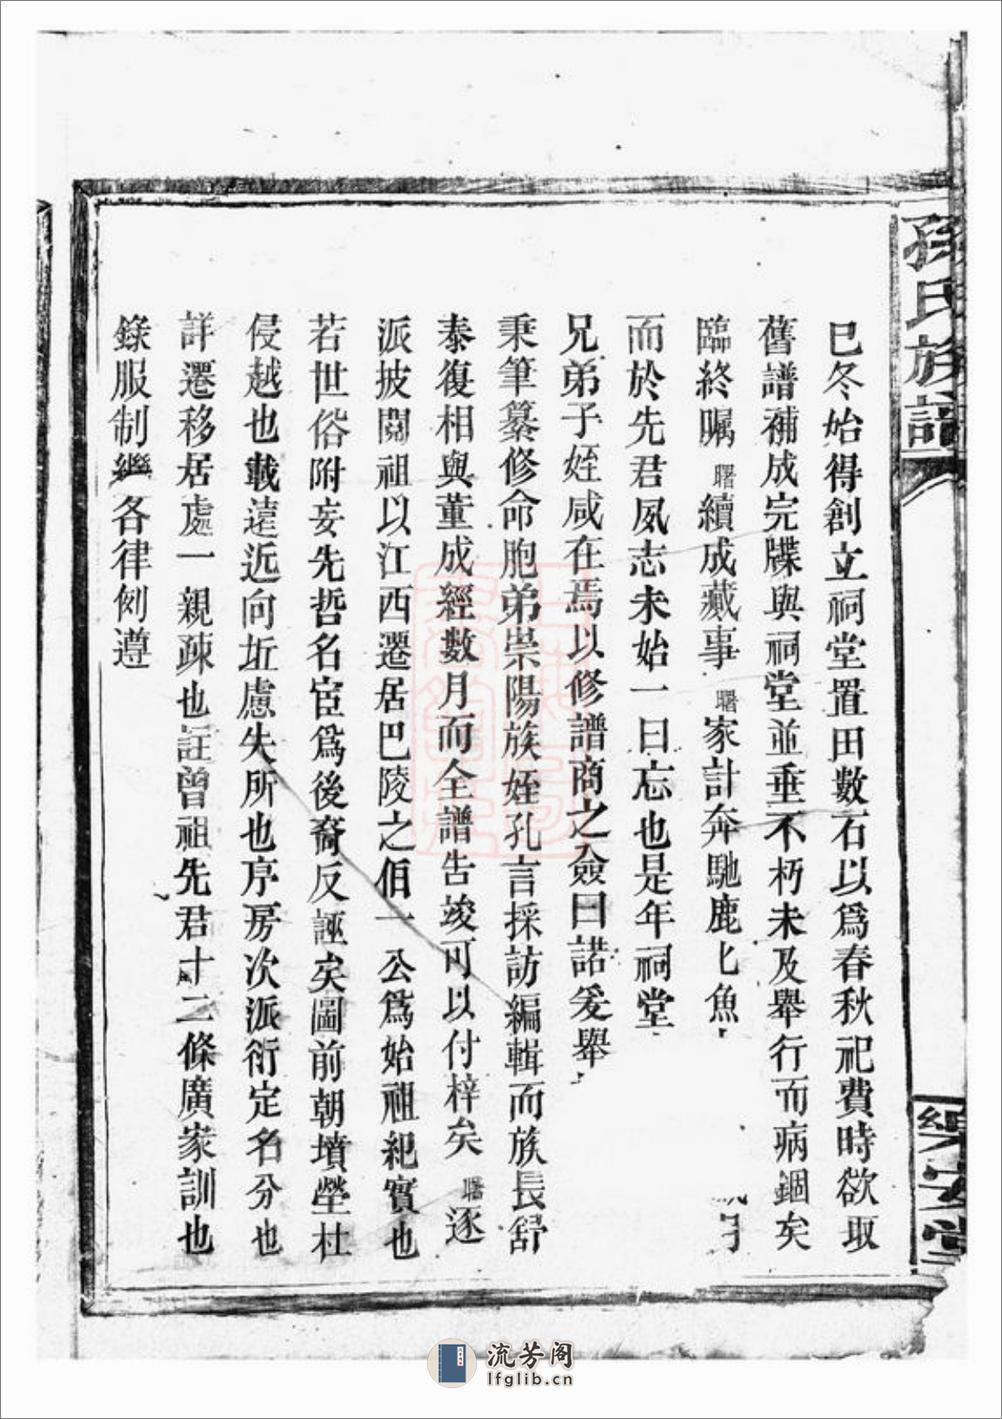 孫氏族譜
樂安堂
巳冬始得創立祠堂置田數石以爲春秋祀費時欲取
舊譜補成完牒與祠堂並垂不朽未及舉行而病錮矣
臨終嘱曙續成蕆事曙家計奔馳鹿匕魚
而於先君夙志未始一日忘也是年祠堂
兄弟子姪咸在焉以修譜商之僉曰諾爰舉
秉筆纂修命胞弟崇陽族姪孔言採訪編輯而族長舒
泰復相與董成經數月而全譜告竣可以付梓矣曙逐
派披閱祖以江西遷居巴陵之佰一公爲始祖紀實也
若世俗附妄先哲名宦爲後裔反誣矣圖前朝墳塋杜
侵越也載遠近向坵慮失所也序房次派衍定名分也
詳遷移居處一親疎也註曾祖先君十二條廣家訓也
錄服制繼各律例遵
流芳阁
lfglib.cn